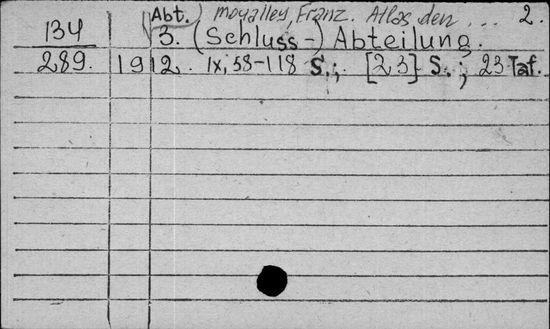 Abt.) Moyalley, Franz. Atlas den ... 2.
134 3. (Schluss-) Abteilung.
289. 1912. IX, 58-118 S.; [23] S.; 23 Taf.